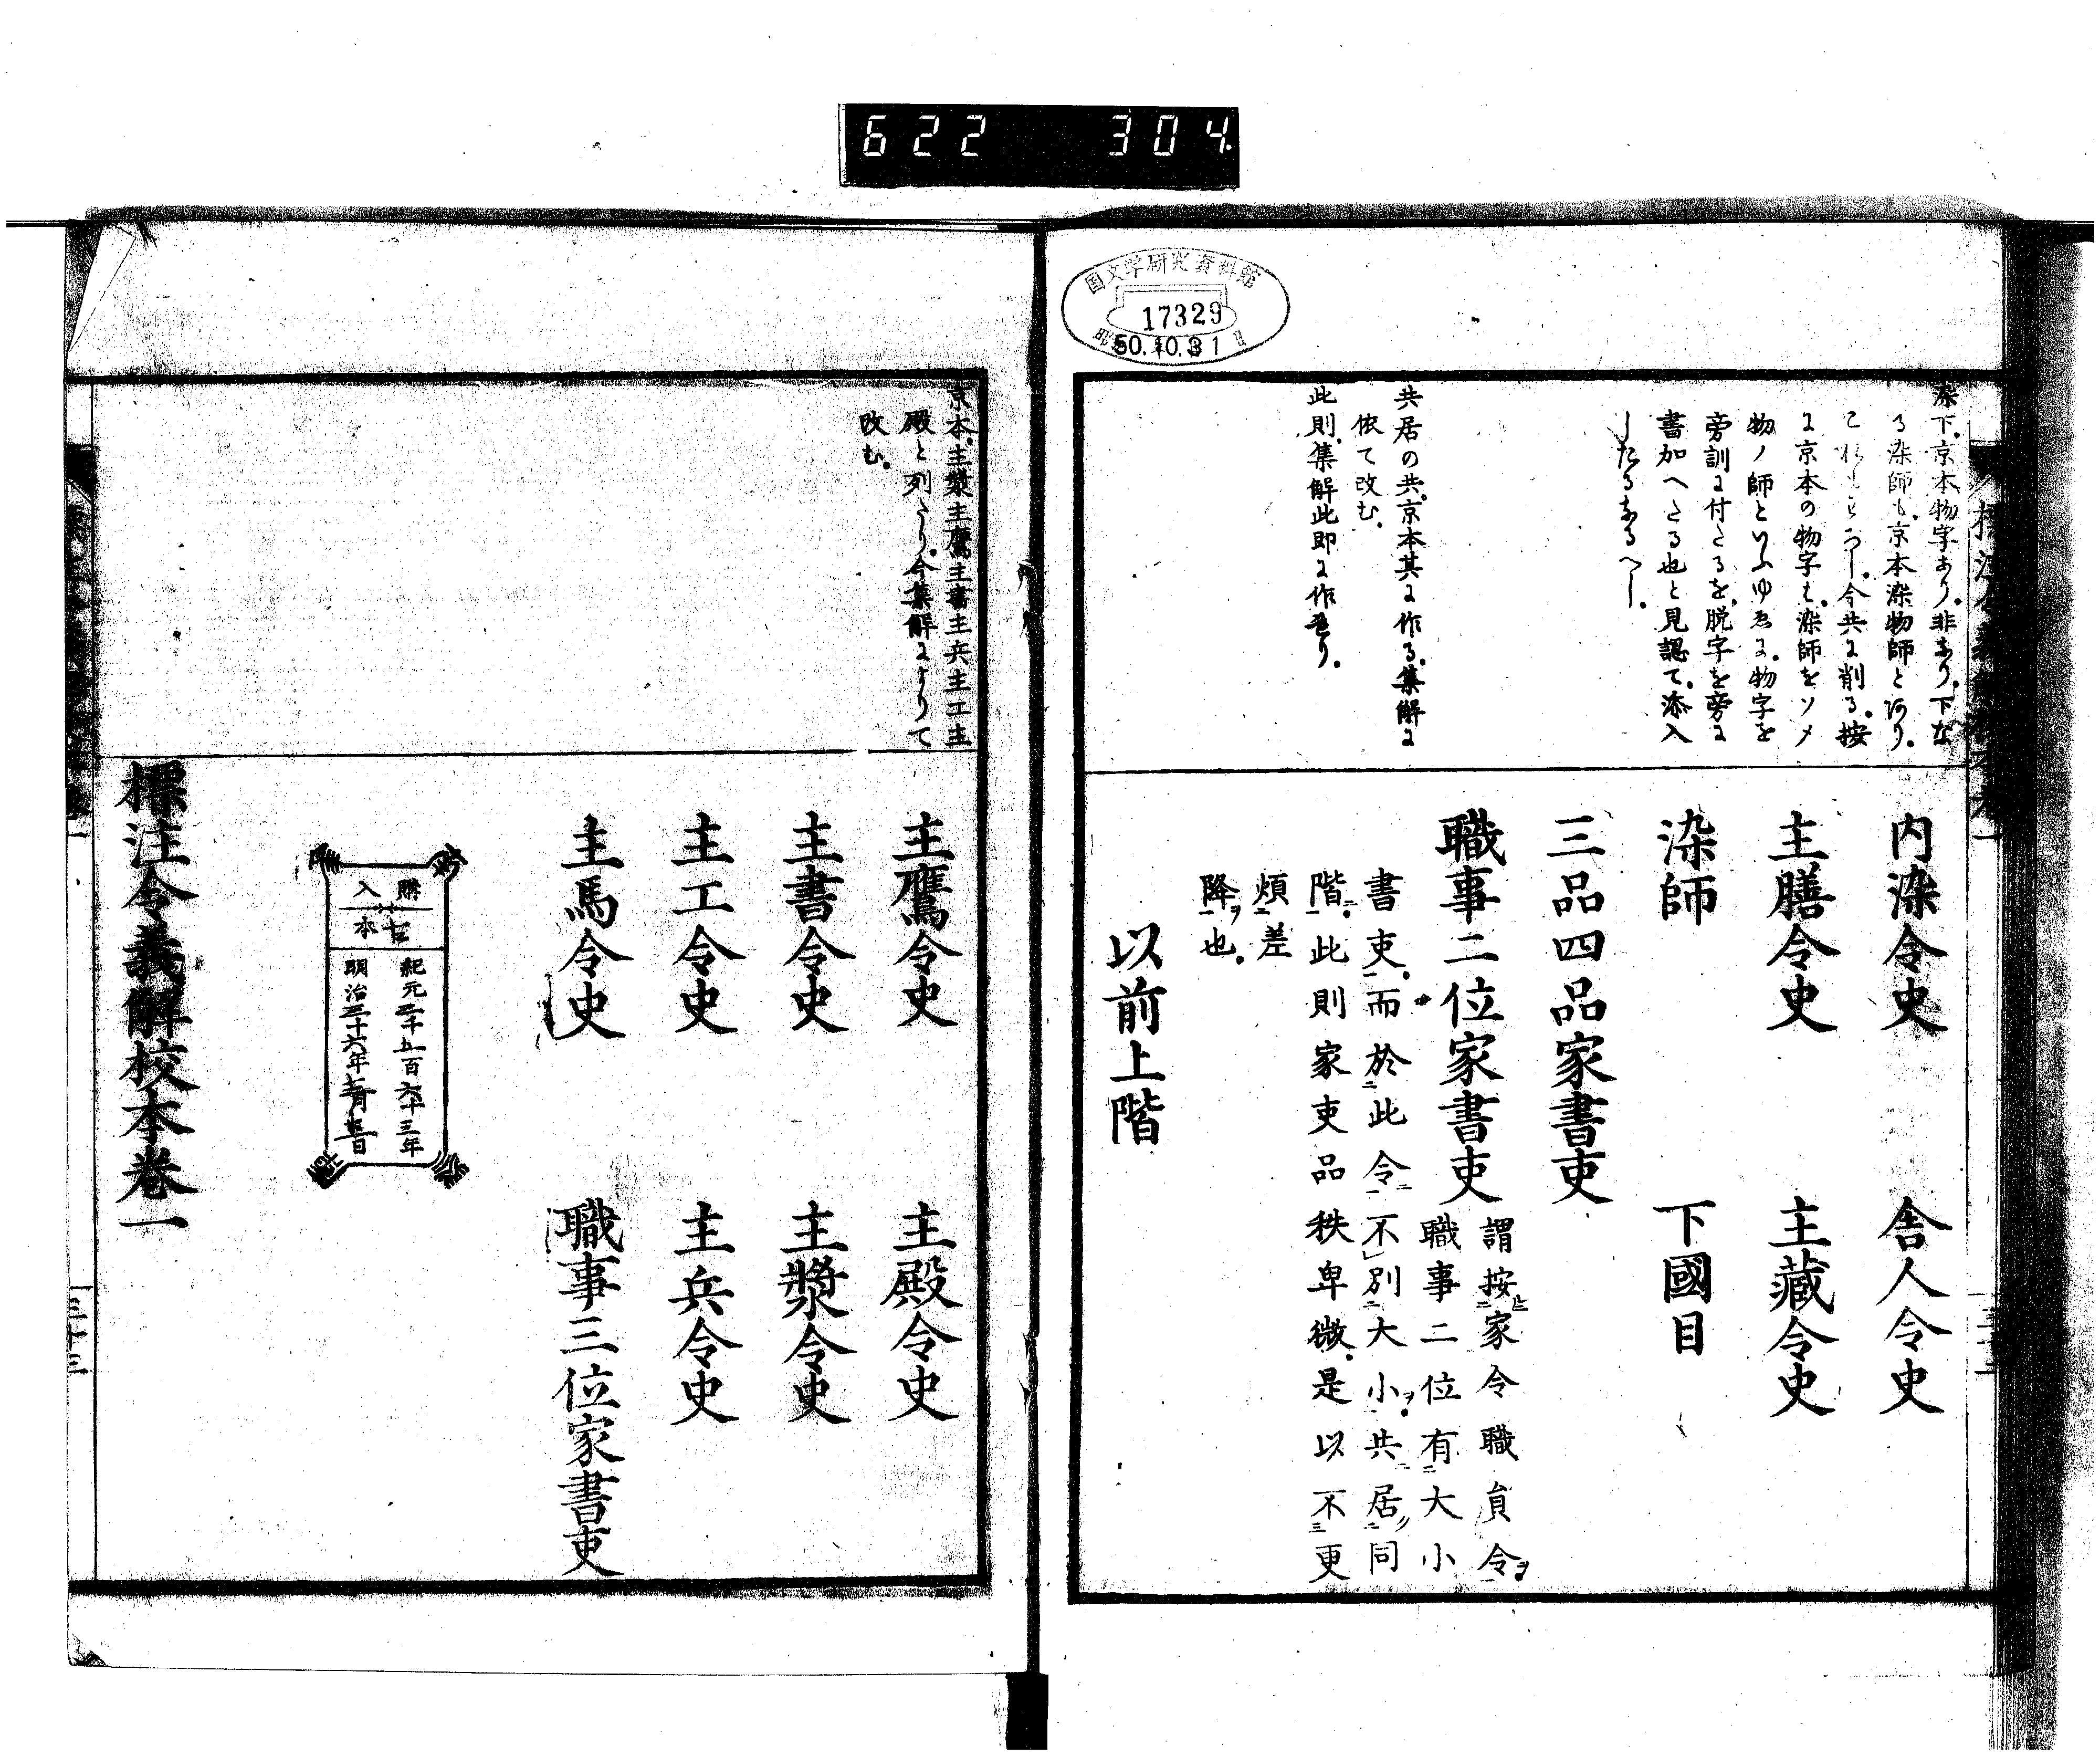 622 304
国文学研究資料館
17329
50.10.31
染下、京本物字あり、非あり、下な
る染師も、京本染物師と
今共に削る、按
に京本の物字も、染師をソメ
物ノ師といふゆゑに、物字を
旁訓に付たるを、脱字を旁に
書加へたる也と見認て、添入
したるあるへし、
共居の共、京本其に作る、集解に
依て改む、
此則、集解此即に作り、
内染令史 舎人令史
主膳令史 主藏令史
染師 下國目
三品四品家書吏
職事二位家書吏
謂按家令職員令
職事二位有大小
書吏而於此令不別大小共居同
階此則家吏品秩卑微是以不更
煩差
降也
以前上階
京本、主漿主鷹主書主兵主工主
殿と列たり、今集解によりて
改む、
主鷹令史 主殿令史
主書令史 主漿令史
主工令史 主兵令史
主馬令史 職事三位家書吏
購入
本
紀元二千五百六十三年
明治三十六年
標注令義解校本巻一
三十三